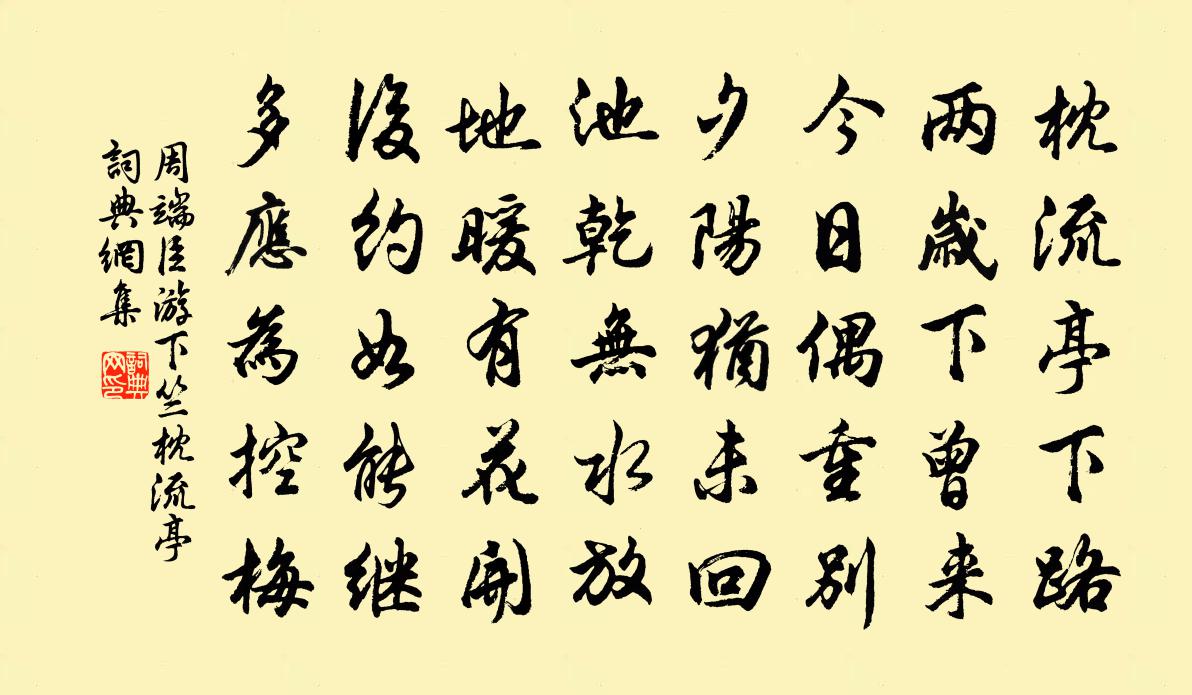 枕流亭下路
两歲下曾来
今日偶重别
夕陽猶未回
池乾無水放
地暖有花開
後約如能继
多應為控梅
周端臣游下竺枕流亭
詞典網集
詞典网印